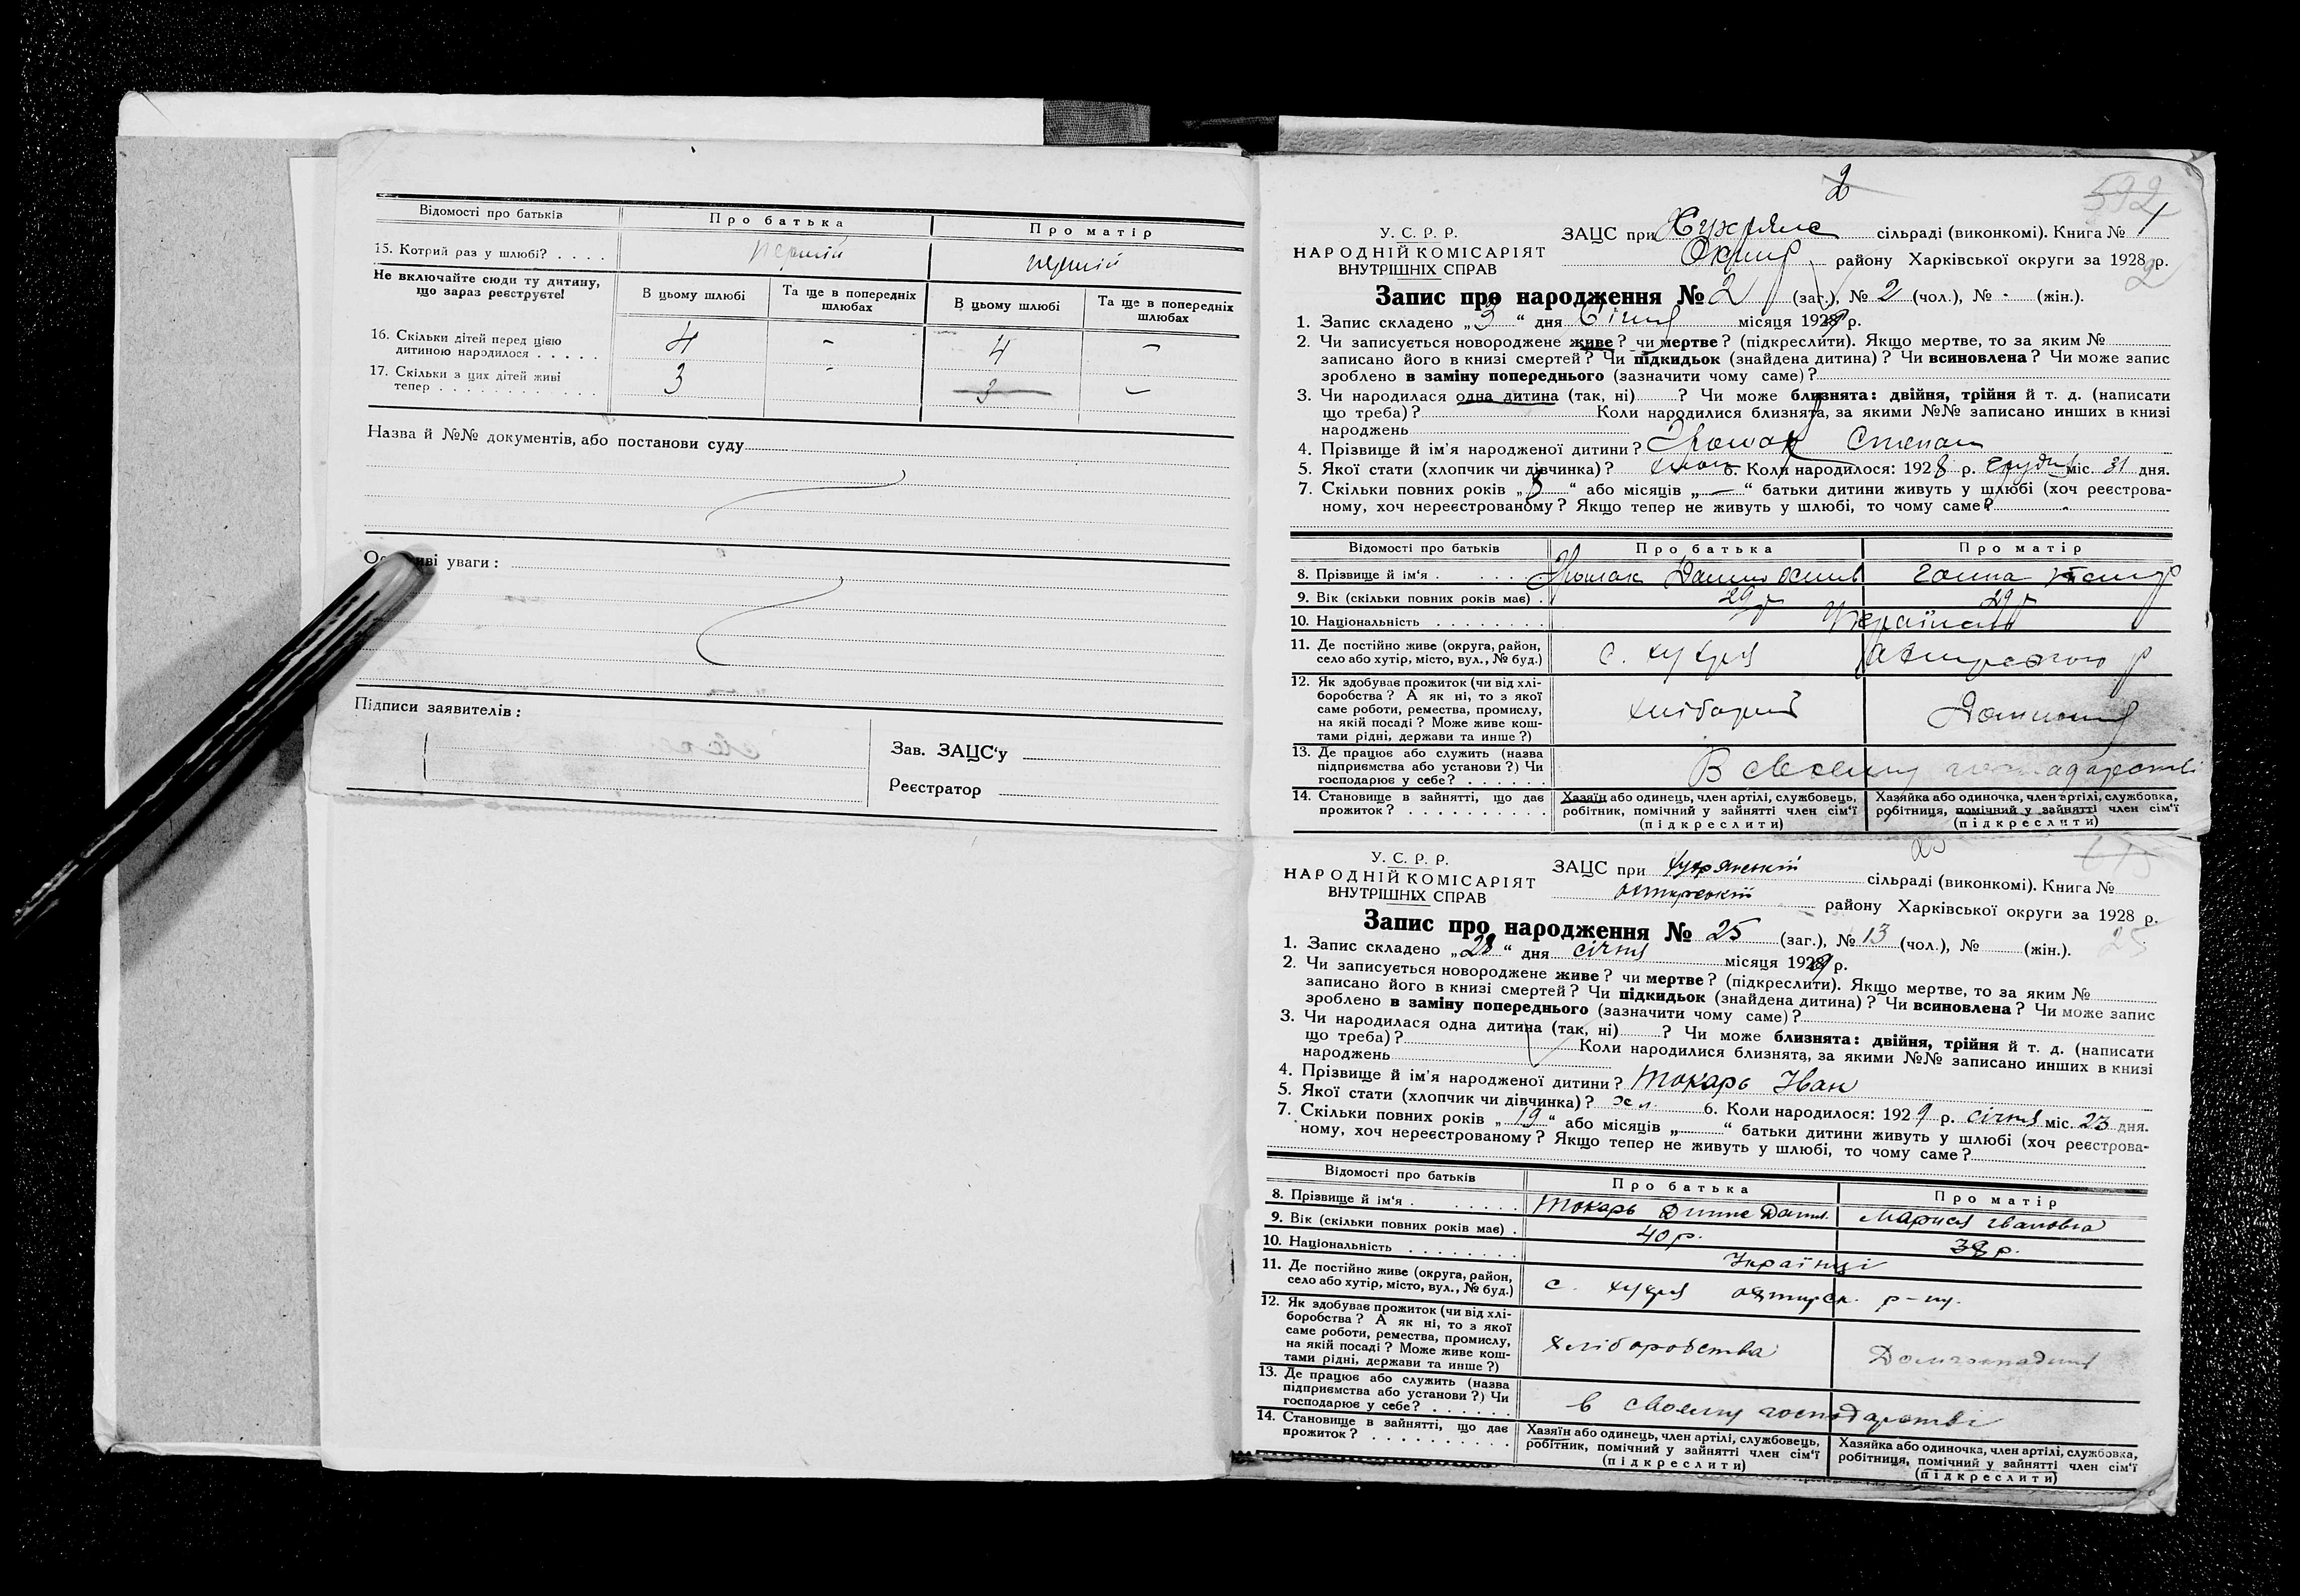 Відомості про батьків
Про батька
Про матір
15. Котрий раз у шлюбі? . . . .
перший
перший
Не включайте сюди ту дитину,
що зараз реєструєте!
В цьому шлюбі
Та ще в попередніх
шлюбах
В цьому шлюбі
Та ще в попередніх
шлюбах
16. Скільки дітей перед цією
дитиною народилося . . . . .
4
-
4
-
17. Скільки з цих дітей живі
тепер . . . . . . . . . . . .
3
-
3
-
Назва й №№ документів, або постанови суду
уваги :
Підписи заявителів :
Зав. ЗАЦС'у
Реєстратор
2
592
У. С. Р. Р.
НАРОДНІЙ КОМІСАРІЯТ
ВНУТРІШНІХ СПРАВ
ЗАЦС при сільраді (виконкомі). Книга № 1
району Харківської округи за 1928 р.
2
Запис про народження № 2 (заг.), № 2 (чол.), № - (жін.).
1. Запис складено „3“ дня Січня місяця 1929 р.
2. Чи записується новороджене живе? чи мертве? (підкреслити). Якщо мертве, то за яким №
записано його в книзі смертей? Чи підкидьок (знайдена дитина)? Чи всиновлена? Чи може запис
зроблено в заміну попереднього (зазначити чому саме)?
3. Чи народилася одна дитина (так, ні) ? Чи може близнята: двійня, трійня й т. д. (написати
що треба)? Коли народилися близнята, за якими №№ записано инших в книзі
народжень
4. Прізвище й ім'я народженої дитини? Степан
5. Якої стати (хлопчик чи дівчинка)? хлоп 6. Коли народилося: 1928 р. грудня міс. 31 дня.
7. Скільки повних років „8“ або місяців „—“ батьки дитини живуть у шлюбі (хоч реєстрова-
ному, хоч нереєстрованому? Якщо тепер не живуть у шлюбі, то чому саме?
Відомості про батьків
Про батька
Про матір
8. Прізвище й ім'я . . . . . .
Данило
Ганна
9. Вік (скільки повних років має) .
29 р
29 р
10. Національність . . . . . . . .
11. Де постійно живе (округа, район,
село або хутір, місто, вул., № буд.)
с. Хухря
12. Як здобуває прожиток (чи від хлі-
боробства? А як ні, то з якої
саме роботи, ремества, промислу,
на якій посаді? Може живе кош-
тами рідні, держави та инше?)
13. Де працює або служить (назва
підприємства або установи?) Чи
господарює у себе? . . . . . .
В своєму господарстві
14. Становище в зайнятті, що дає
прожиток? . . . . . . . . . .
Хазяїн або одинець, член артілі, службовець,
робітник, помічний у зайнятті член сім'ї
(підкреслити)
Хазяйка або одиночка, член артілі, службовка,
робітниця, помічний у зайнятті член сім'ї
(підкреслити)
25
У. С. Р. Р.
НАРОДНІЙ КОМІСАРІЯТ
ВНУТРІШНІХ СПРАВ
ЗАЦС при Хухрянській сільраді (виконкомі). Книга №
району Харківської округи за 1928 р.
25
Запис про народження № 25 (заг.), № 13 (чол.), № (жін.).
1. Запис складено „28“ дня січня місяця 1929 р.
2. Чи записується новороджене живе? чи мертве? (підкреслити). Якщо мертве, то за яким №
записано його в книзі смертей? Чи підкидьок (знайдена дитина)? Чи всиновлена? Чи може запис
зроблено в заміну попереднього (зазначити чому саме)?
3. Чи народилася одна дитина (так, ні) ? Чи може близнята: двійня, трійня й т. д. (написати
що треба)? Коли народилися близнята, за якими №№ записано инших в книзі
народжень
4. Прізвище й ім'я народженої дитини? Токарь Іван
5. Якої стати (хлопчик чи дівчинка)? хл. 6. Коли народилося: 1929 р. січня міс. 23 дня.
7. Скільки повних років „19“ або місяців „ “ батьки дитини живуть у шлюбі (хоч реєстрова-
ному, хоч нереєстрованому? Якщо тепер не живуть у шлюбі, то чому саме?
Відомості про батьків
Про батька
Про матір
8. Прізвище й ім'я . . . . . .
Токарь Данил.
Мария Ивановна
9. Вік (скільки повних років має) .
40 р.
38 р.
10. Національність . . . . . . . .
Українці
11. Де постійно живе (округа, район,
село або хутір, місто, вул., № буд.)
с. Хухря охтирск. р-ну.
12. Як здобуває прожиток (чи від хлі-
боробства? А як ні, то з якої
саме роботи, ремества, промислу,
на якій посаді? Може живе кош-
тами рідні, держави та инше?)
хліборобства
13. Де працює або служить (назва
підприємства або установи?) Чи
господарює у себе? . . . . . .
в своєму господарстві
14. Становище в зайнятті, що дає
прожиток? . . . . . . . . . .
Хазяїн або одинець, член артілі, службовець,
робітник, помічний у зайнятті член сім'ї
(підкреслити)
Хазяйка або одиночка, член артілі, службовка,
робітниця, помічний у зайнятті член сім'ї
(підкреслити)